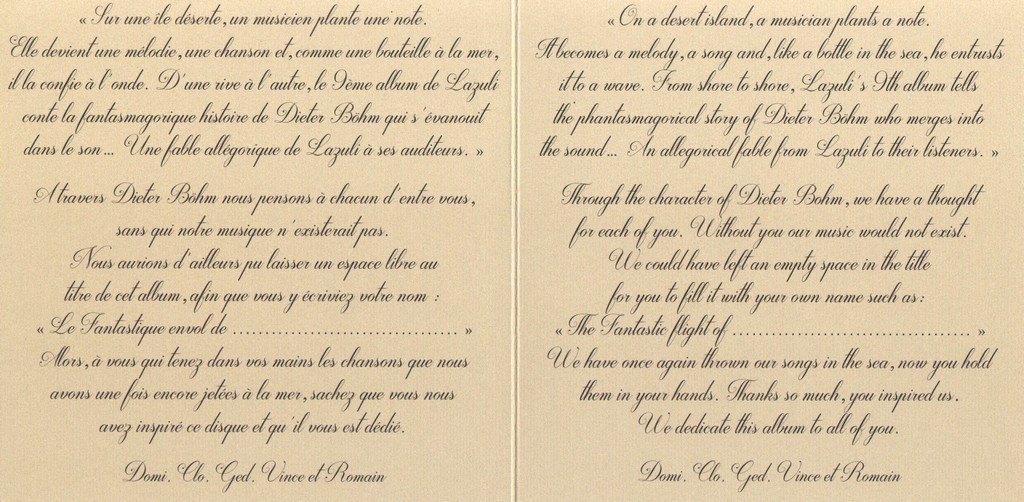 « Sur une île déserte, un musicien plante une note.
Elle devient une mélodie, une chanson et, comme une bouteille à la mer,
il la confie à l'onde. D'une rive à l'autre, le 9ème album de Lazuli
conte la fantasmagorique histoire de Dieter Böhm qui s'évanouit
dans le son... Une fable allégorique de Lazuli à ses auditeurs. »
A travers Dieter Böhm nous pensons à chacun d'entre vous,
sans qui notre musique n'existerait pas.
Nous aurions d'ailleurs pu laisser un espace libre au
titre de cet album, afin que vous y écriviez votre nom :
« Le Fantastique envol de .................................... »
Alors, à vous qui tenez dans vos mains les chansons que nous
avons une fois encore jetées à la mer, sachez que vous nous
avez inspiré ce disque et qu'il vous est dédié.
Domi, Clo, Ged, Vince et Romain
« On a desert island, a musician plants a note.
It becomes a melody, a song and, like a bottle in the sea, he entrusts
it to a wave. From shore to shore, Lazuli's 9th album tells
the phantasmagorical story of Dieter Böhm who merges into
the sound... An allegorical fable from Lazuli to their listeners. »
Through the character of Dieter Bohm, we have a thought
for each of you. Without you our music would not exist.
We could have left an empty space in the title
for you to fill it with your own name such as:
« The Fantastic flight of ...................................... »
We have once again thrown our songs in the sea, now you hold
them in your hands. Thanks so much, you inspired us.
We dedicate this album to all of you.
Domi, Clo, Ged, Vince et Romain